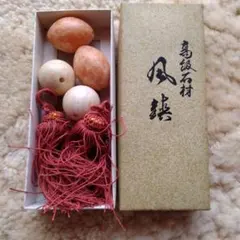 高級石材
風鎮